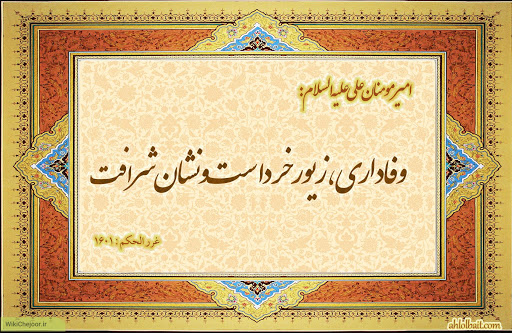 امیرمومنان علی علیه السلام:
وفاداری، زیور خرد است و نشان شرافت
غررالحکم: ۱۶۰۱
WikiChejoor.ir
ahlolbait.com